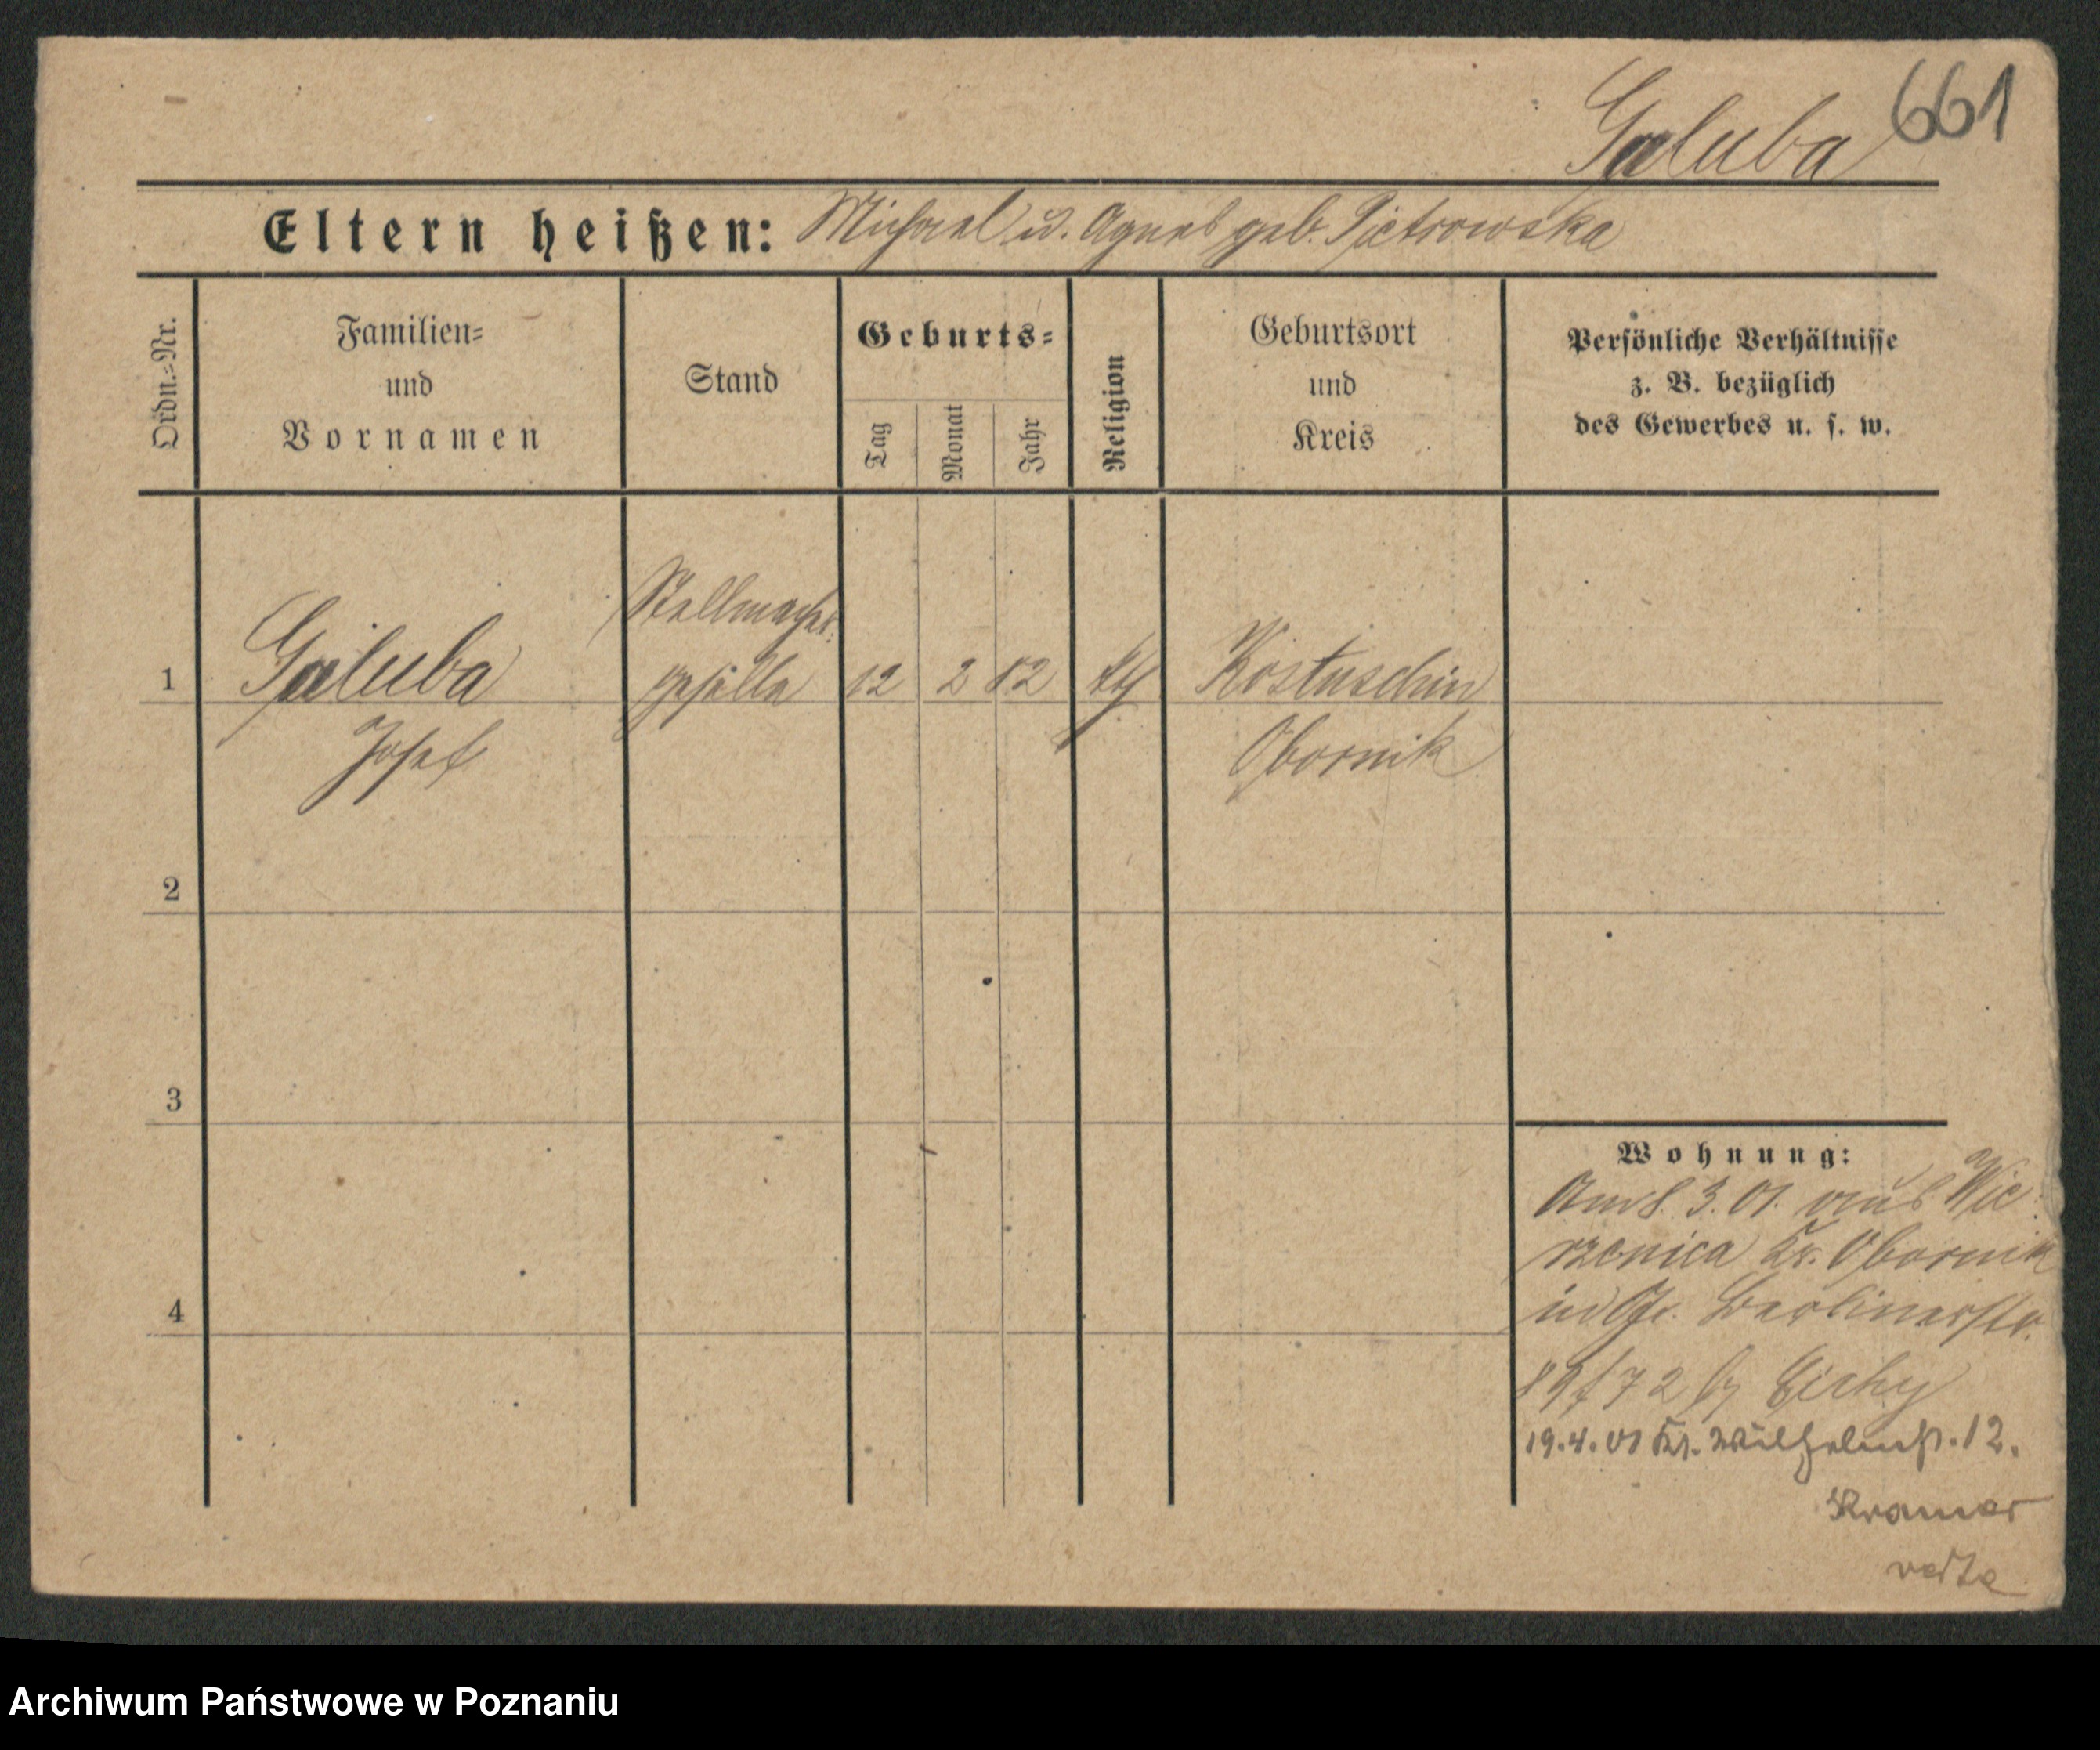 661
Galuba
Eltern heißen: Michael u. Agnes geb. Pietrowska
Ordn.=Nr.
Familien=
und
Vornamen
Stand
Geburts=
Tag
Monat
Jahr
Religion
Geburtsort
und
Kreis
Persönliche Verhältnisse
z. B. bezüglich
des Gewerbes u. s. w.
1
Galuba
Josef
Stellmacher
geselle
12 2 82
kth
Kostuschin
Obornik
2
3
4
Wohnung:
Am 8.3.01. aus Wie
rzenica Kr. Obornik
in Berlinerstr.
Cichy
19.4.01 Wilhelmst. 12.
Kramer
Archiwum Państwowe w Poznaniu